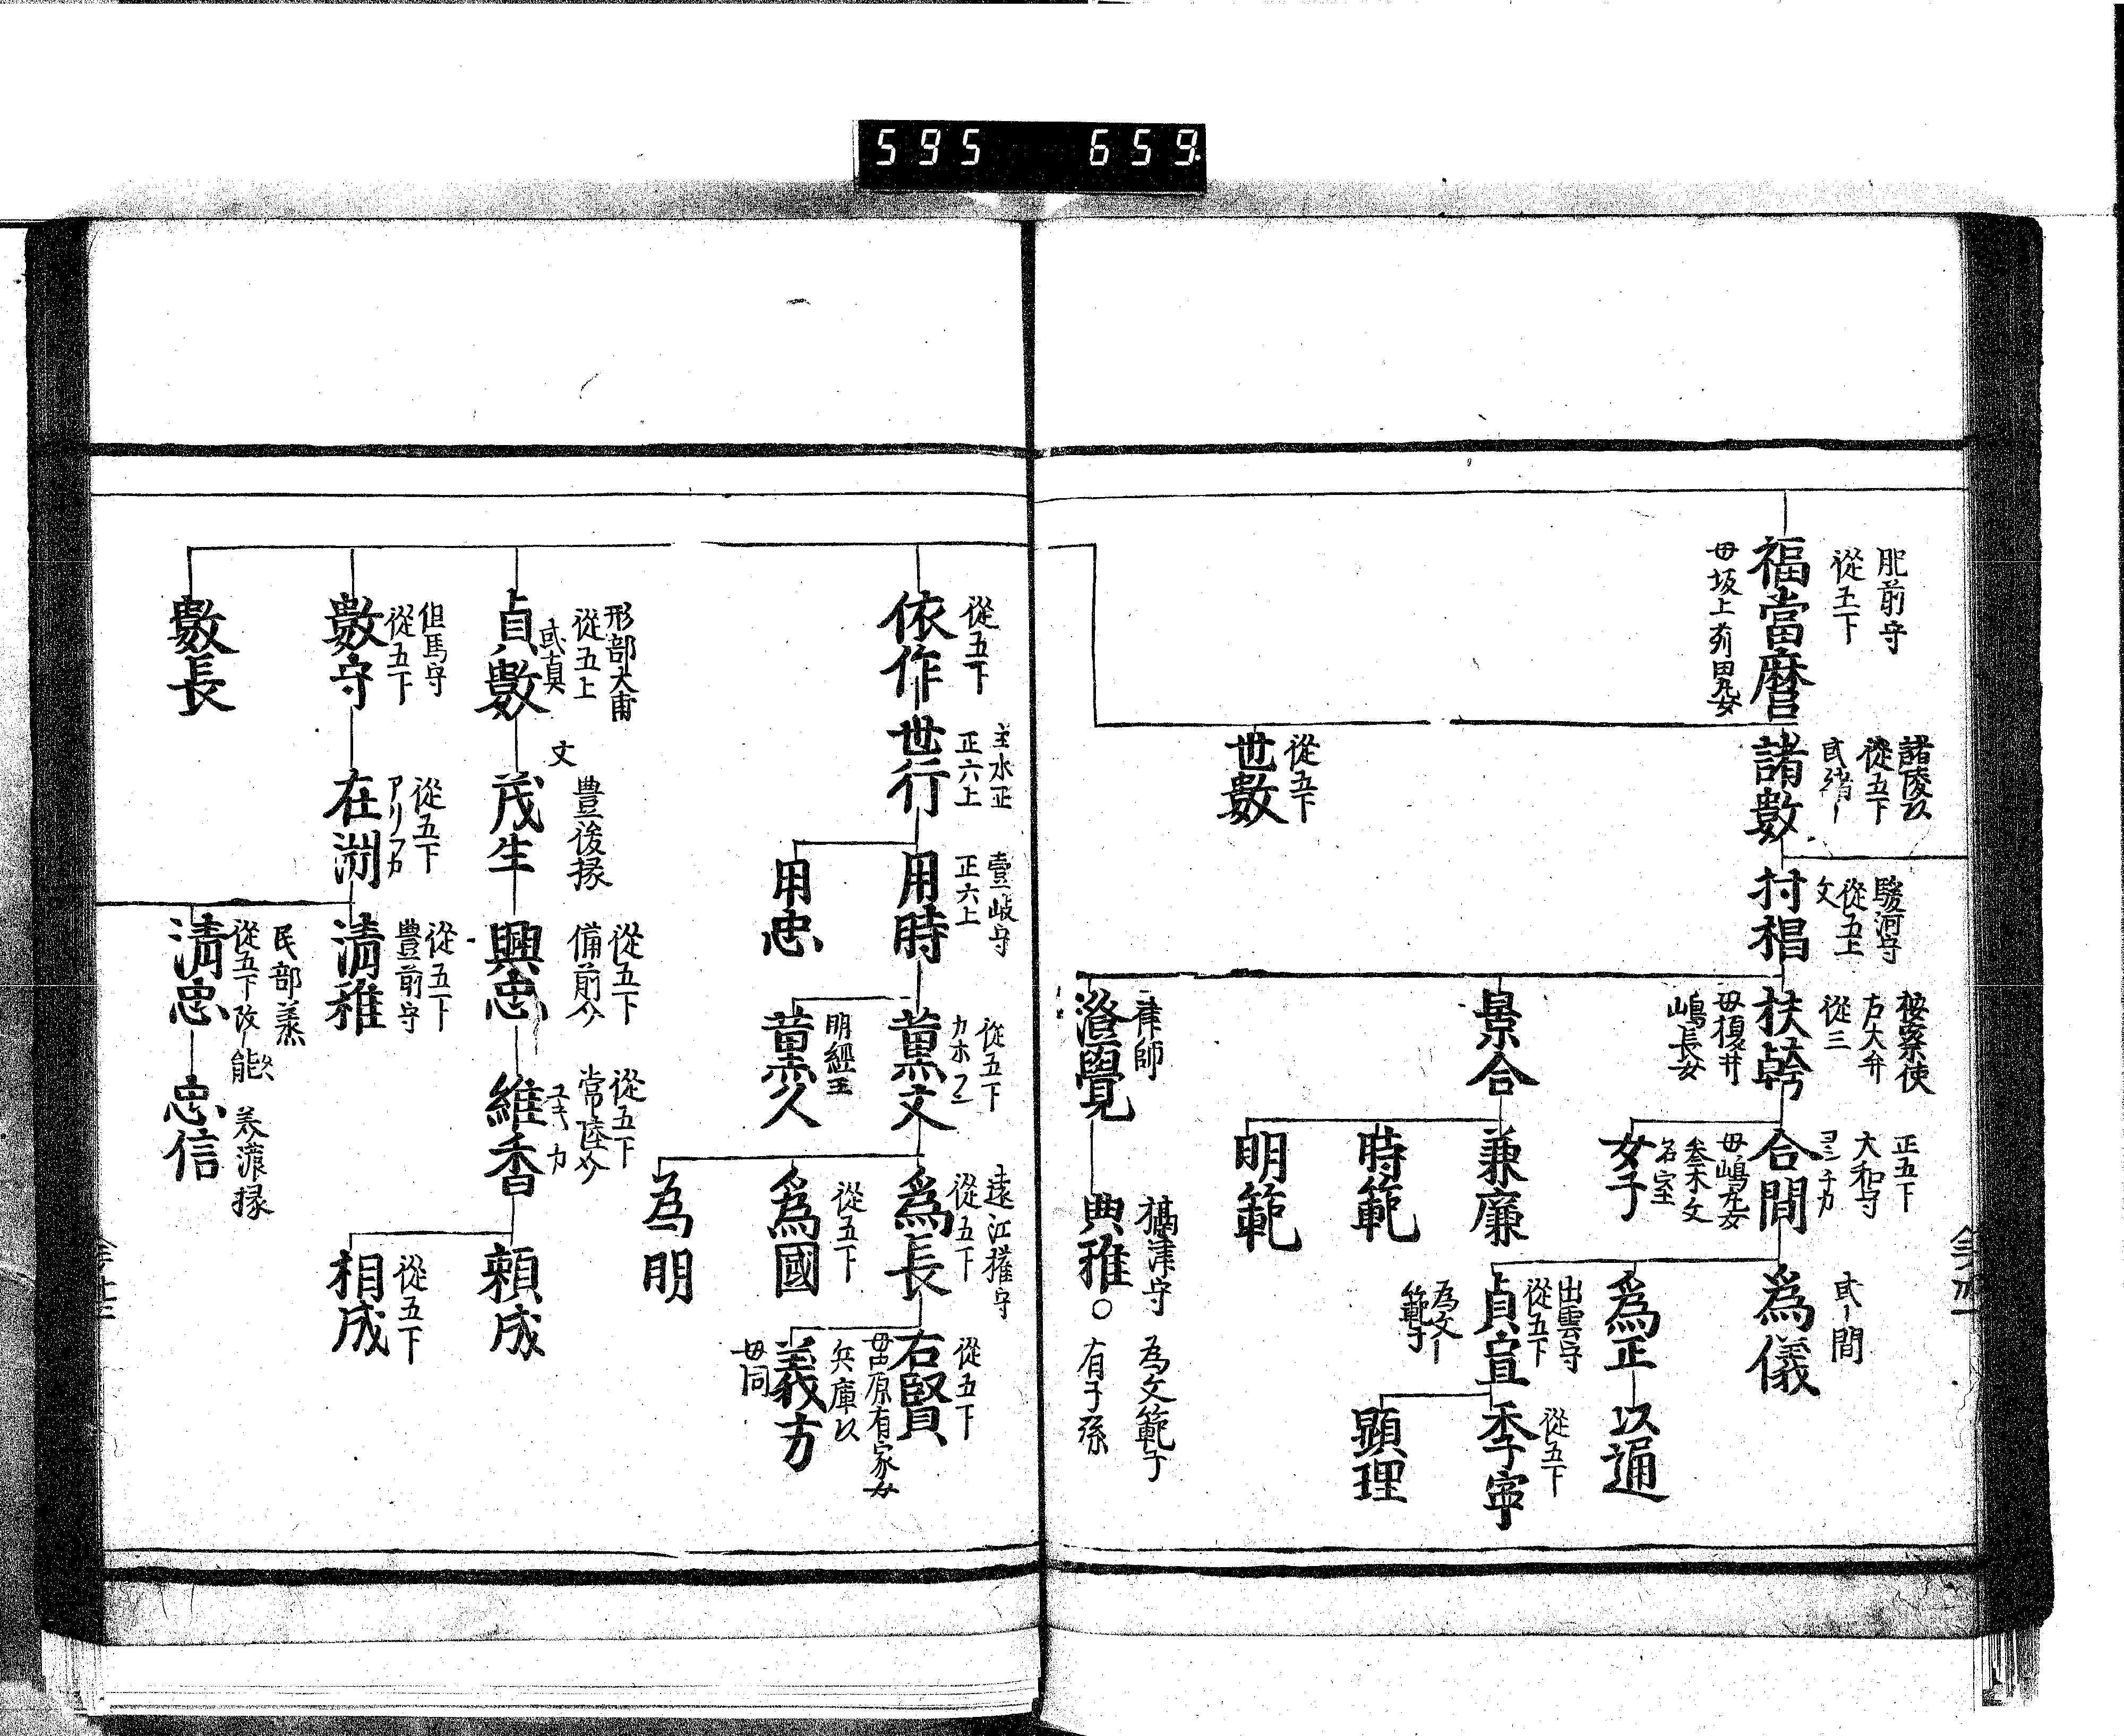 595 659
肥前守
從五下
福當麿
母坂上苅田丸女
諸陵以
從五下
諸數
駿河守
從五上
文
村椙
按察使
右大弁
從三
扶幹
母榎井
嶋長女
正五下
大和守
合間
母嶋
參木文
名室
女子
間
爲儀
爲正
以遍
出雲守
從五下
貞宣
為文
範子
從五下
季宗
顕理
景合
兼廉
時範
明範
從五下
世數
律師
澄覺
攝津守
為文範子
典雅〇有子孫
從五下
依作
主水正
正六上
世行
壹岐守
正六上
用時
用忠
從五下
薫文
明經
薫久
遠江權守
從五下
爲長
從五下
爲國
為明
從五下
右賢
母田原有家女
兵庫以
義方
母同
刑部大甫
從五上
或真
貞數
文
豊後掾
茂生
從五下
備前介
興忠
從五下
常陸介
維香
頼成
從五下
相成
但馬守
從五下
數守
從五下
アリフカ
在渕
從五下
豊前守
清雅
民部丞
從五下改能
清忠
美濃掾
忠信
數長